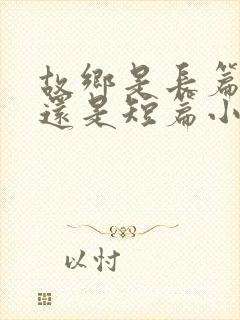 故鄉是長篇
還是短篇小
以忖